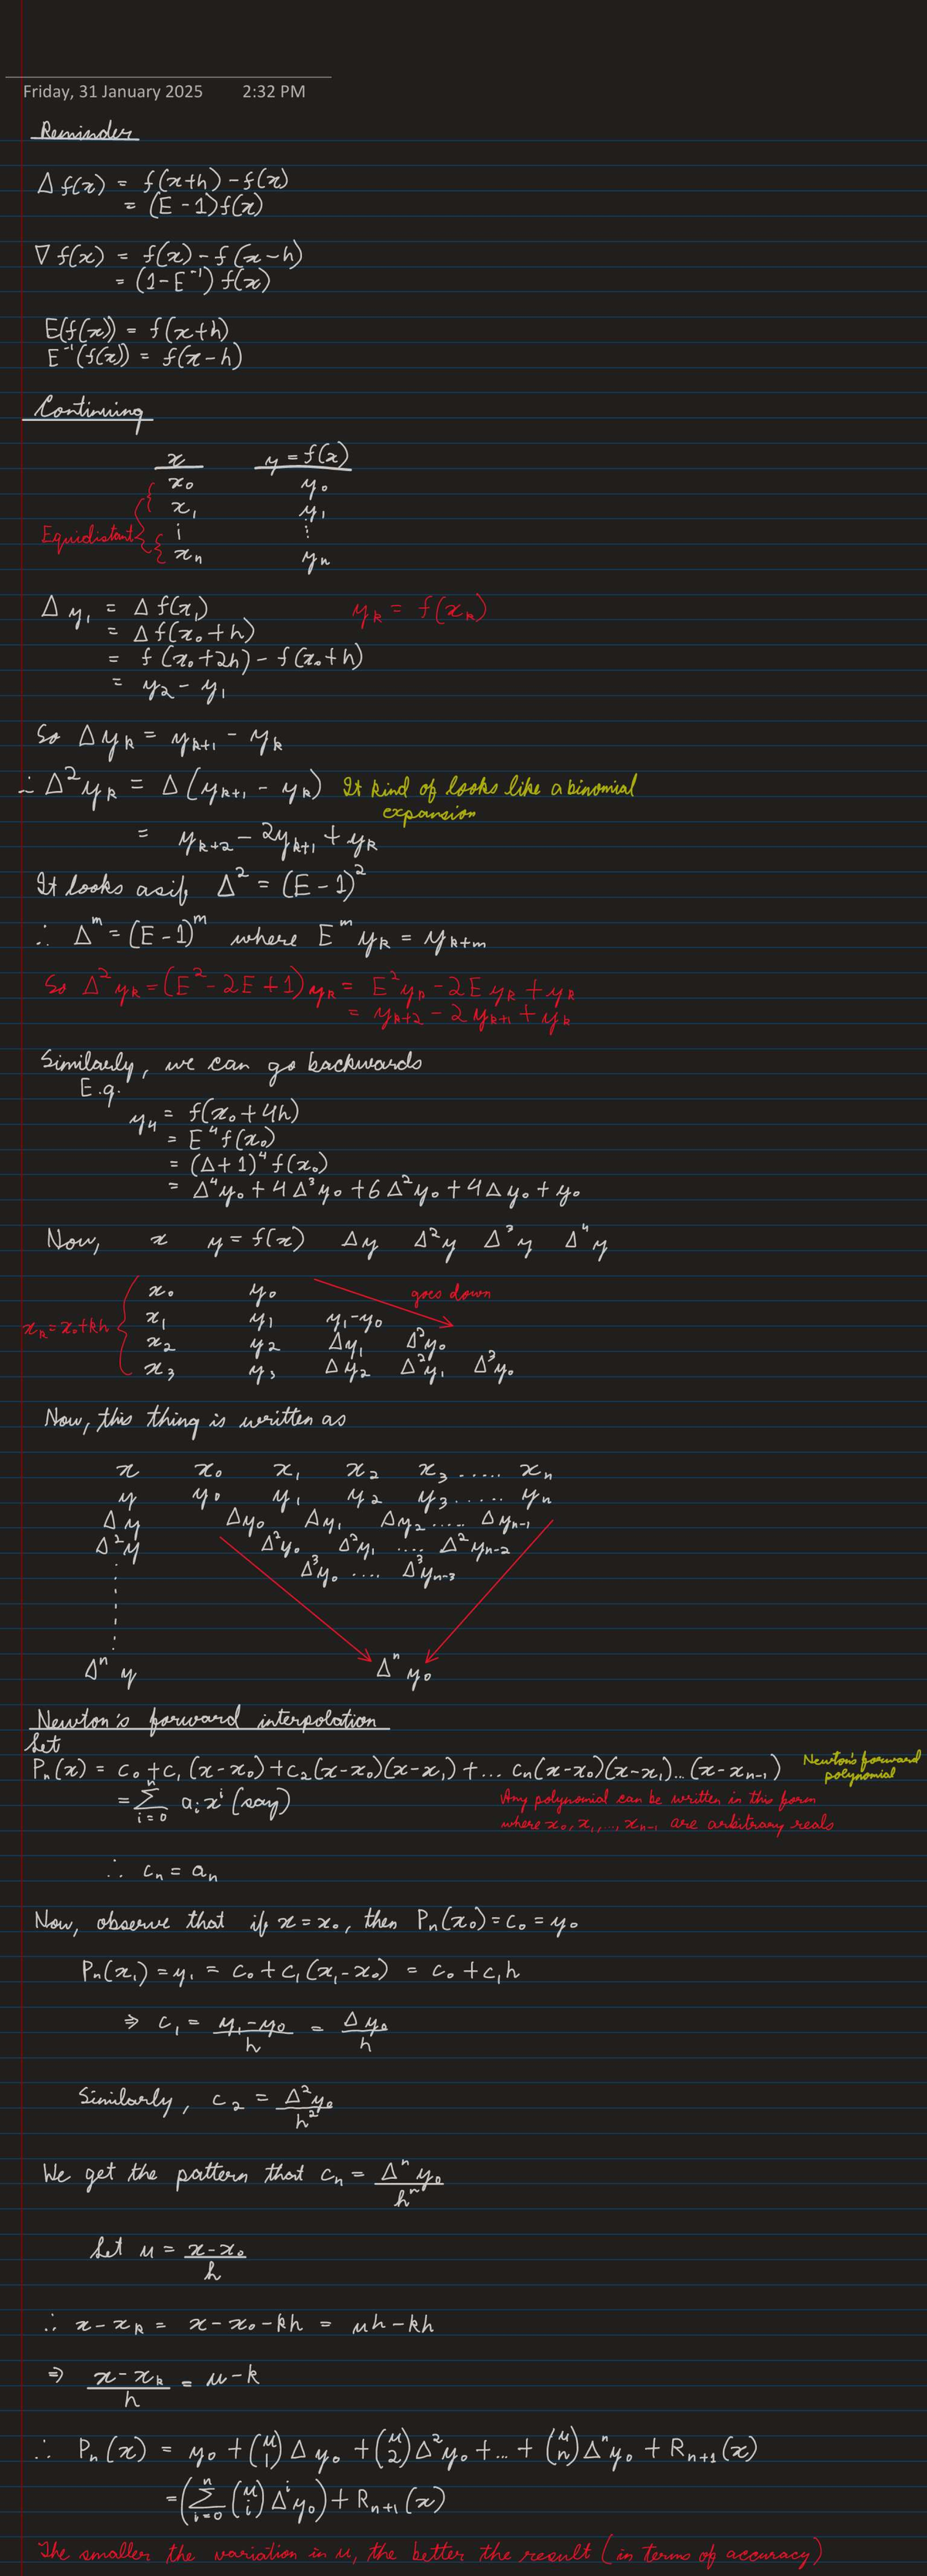 Friday, 31 January 2025 2:32 PM
Reminder
Δ f(x) = f(x+h) - f(x)
= (E - 1) f(x)
∇ f(x) = f(x) - f(x-h)
= (1 - E⁻¹) f(x)
E(f(x)) = f(x+h)
E⁻¹(f(x)) = f(x-h)
Continuing
x y = f(x)
x₀ y₀
x₁ y₁
Equidistant ⋮ ⋮
xₙ yₙ
Δ y₁ = Δ f(x₁) yₖ = f(xₖ)
= Δ f(x₀+h)
= f(x₀+2h) - f(x₀+h)
= y₂ - y₁
So Δ yₖ = yₖ₊₁ - yₖ
∴ Δ² yₖ = Δ (yₖ₊₁ - yₖ) It kind of looks like a binomial
expansion
= yₖ₊₂ - 2yₖ₊₁ + yₖ
It looks as if Δ² = (E - 1)²
∴ Δᵐ = (E - 1)ᵐ where Eᵐ yₖ = yₖ₊ₘ
So Δ² yₖ = (E² - 2E + 1) yₖ = E² yₖ - 2E yₖ + yₖ
= yₖ₊₂ - 2 yₖ₊₁ + yₖ
Similarly, we can go backwards
E.g.
y₄ = f(x₀ + 4h)
= E⁴ f(x₀)
= (Δ + 1)⁴ f(x₀)
= Δ⁴ y₀ + 4 Δ³ y₀ + 6 Δ² y₀ + 4 Δ y₀ + y₀
Now, x y = f(x) Δy Δ²y Δ³y Δ⁴y
x₀ y₀ goes down
xₖ = x₀ + kh x₁ y₁ y₁ - y₀
x₂ y₂ Δy₁ Δ²y₀
x₃ y₃ Δy₂ Δ²y₁ Δ³y₀
Now, this thing is written as
x x₀ x₁ x₂ x₃ ..... xₙ
y y₀ y₁ y₂ y₃ ..... yₙ
Δy Δy₀ Δy₁ Δy₂ ..... Δyₙ₋₁
Δ²y Δ²y₀ Δ²y₁ .... Δ²yₙ₋₂
Δ³y₀ .... Δ³yₙ₋₃
Δⁿ y Δⁿ y₀
Newton's forward interpolation
Let
Pₙ(x) = c₀ + c₁ (x-x₀) + c₂(x-x₀)(x-x₁) + ... cₙ(x-x₀)(x-x₁)...(x-xₙ₋₁) Newton's forward
polynomial
= ∑ᵢ₌₀ⁿ aᵢ xⁱ (say) Any polynomial can be written in this form
where x₀, x₁, ..., xₙ₋₁ are arbitrary reals
∴ cₙ = aₙ
Now, observe that if x = x₀, then Pₙ(x₀) = c₀ = y₀
Pₙ(x₁) = y₁ = c₀ + c₁(x₁-x₀) = c₀ + c₁h
⇒ c₁ = (y₁-y₀)/h = Δy₀/h
Similarly, c₂ = Δ²y₀/h²
We get the pattern that cₙ = Δⁿ y₀/hⁿ
Let u = (x-x₀)/h
∴ x - xₖ = x - x₀ - kh = uh - kh
⇒ (x-xₖ)/h = u - k
∴ Pₙ(x) = y₀ + (u 1) Δy₀ + (u 2) Δ²y₀ + ... + (u n) Δⁿy₀ + Rₙ₊₁(x)
= (∑ᵢ₌₀ⁿ (u i) Δⁱy₀) + Rₙ₊₁(x)
The smaller the variation in u, the better the result (in terms of accuracy)